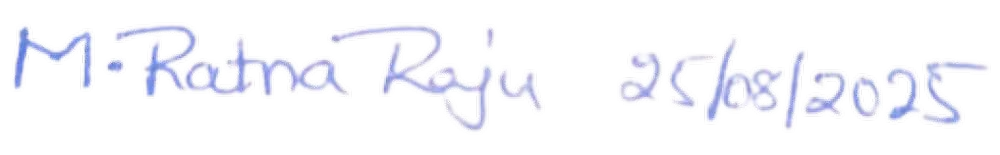 M. Ratna Raju 25/08/2025